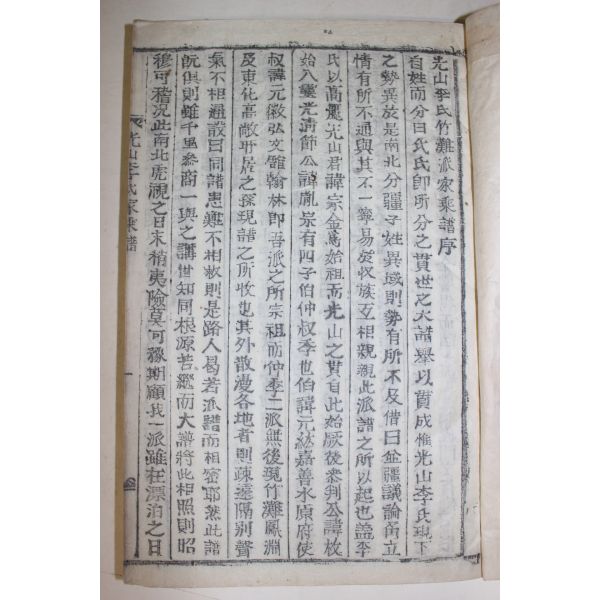 光山李氏竹灘派家乘譜序
自姓而分曰氏氏卽所分之貫世之大譜舉以貫成惟光山李氏現下
之勢異於是南北分疆子姓異域則勢有所不及借曰並疆議論角立
情有所不通與其不一寧易從收族互相親親此派譜之所以起也盖李
氏以高麗光山君諱宗金爲始祖而光山之貫自此始厥後參判公諱枚
始入肇光淸節公諱胤宗有四子伯仲叔季也伯諱元紘嘉善水原府使
叔諱元徽弘文舘翰林卽吾派之所宗祖而仲季二派無後現竹灘鳳淵
及東化高敞所居之探現譜之所收也其外散漫各地者則疎遠隔別聲
氣不相通設曰同譜患難不相救則是路人曷若派譜而相密耶然此譜
旣俱則雖千里參商一與之講世知同根源若繼而大譜將此相照則昭
穆可稽況此南北虎視之日末稍夷險莫可豫期顧我一派雖在漂泊之日
光山李氏家乘譜